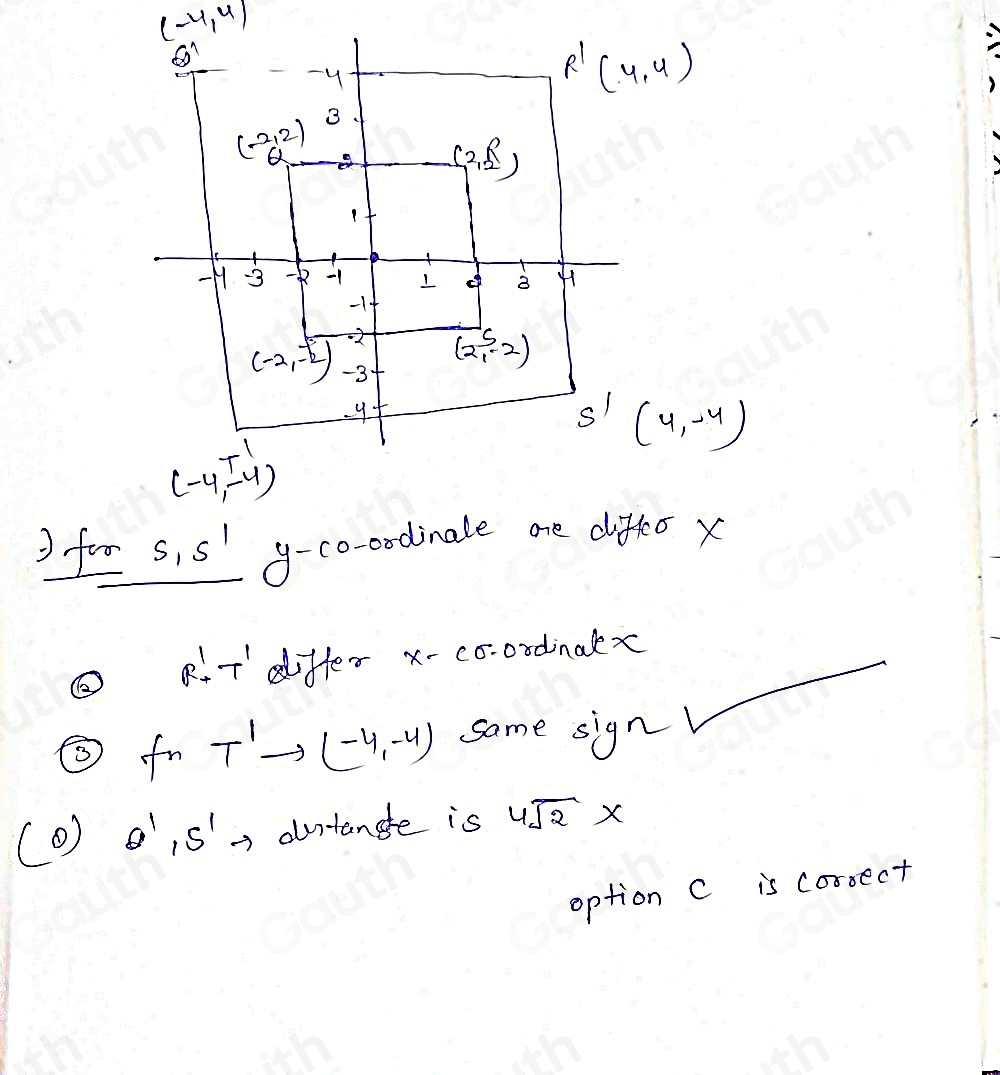 (-4,4)
Q'
-4
R' (4,4)
3
(-2,2)
Q
2
R
(2,2)
1
-4 -3 -2 -1 1 2 3 4
-1
-2
(-2,-2)
S
(2,-2)
-3
-4
S' (4,-4)
T'
(-4,-4)
⇒ for S, S' y-co-ordinate are differ X
② R', T' differ x-co-ordinate x
③ fn T' → (-4,-4) same sign ✓
(①) Q', S' → distance is 4√2 X
option C is correct
Gauth